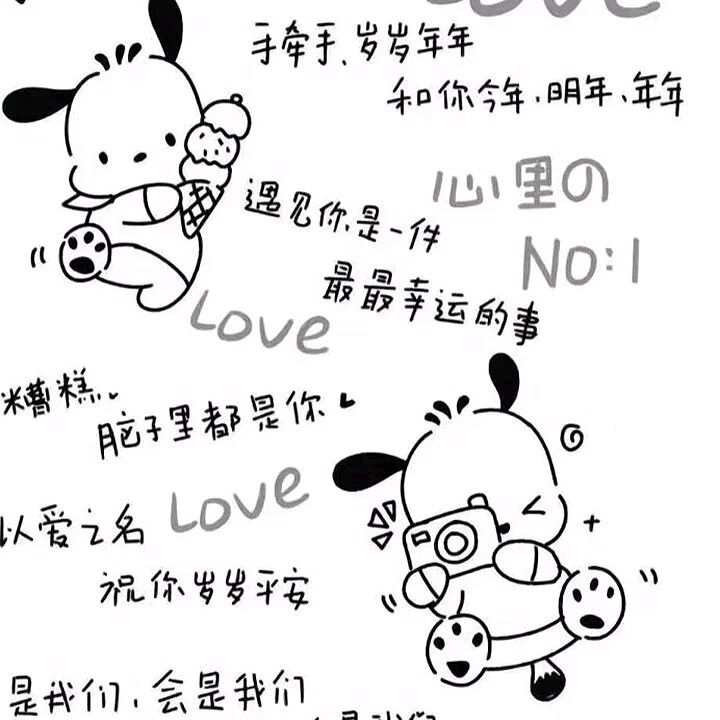 Love
手牵手、岁岁年年
和你今年、明年、年年
心里の
NO:1
遇见你是一件
最最幸运的事
Love
糟糕、
脑子里都是你、
以爱之名
Love
祝你岁岁平安
是我们、会是我们